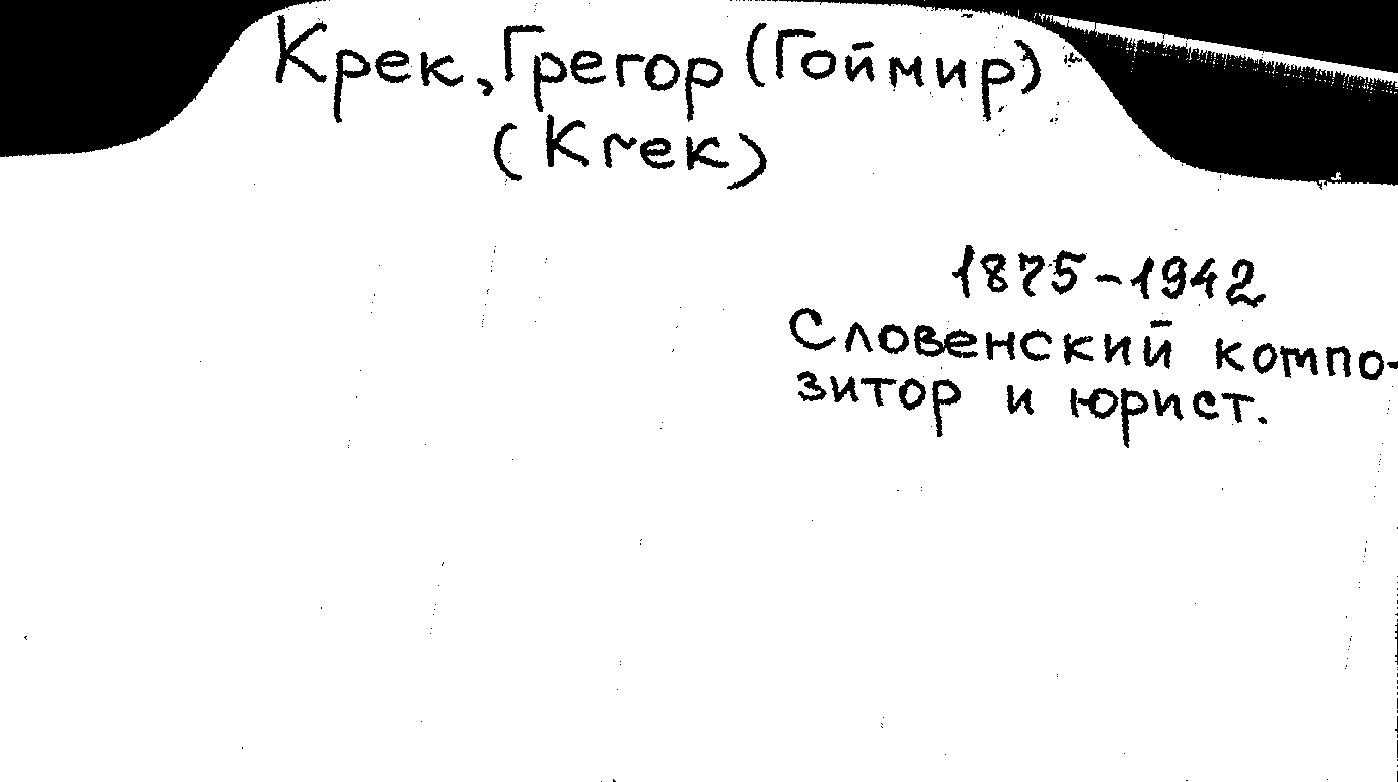 Крек, Грегор (Гоймир)
(Krek)
1875-1942
Словенский компо-
зитор и юрист.